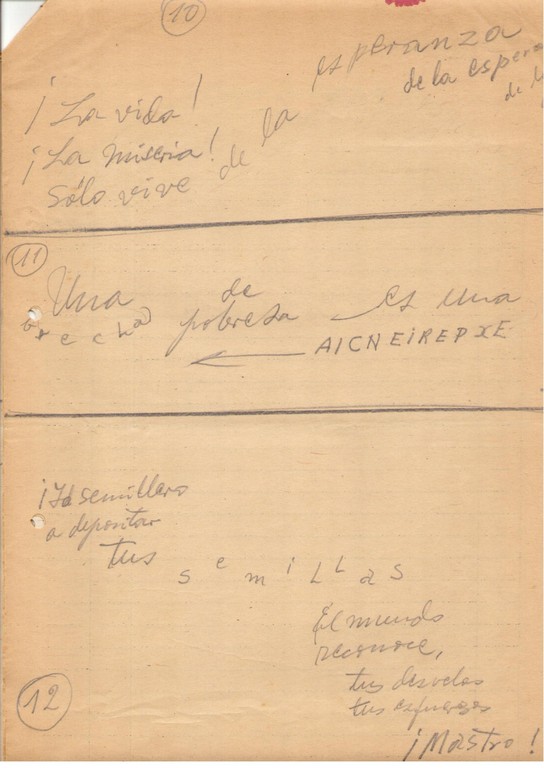 10
¡La vida!
¡La miseria!
Sólo vive
de la
esperanza
de la espera
de l
11
Una
brecha
de
pobresa
es una
AICNEIREPXE
semillero
a depositar
tus
semillas
El mundo
reconoce,
tus desvelos
tus esfuerzos
¡Mastro!
12